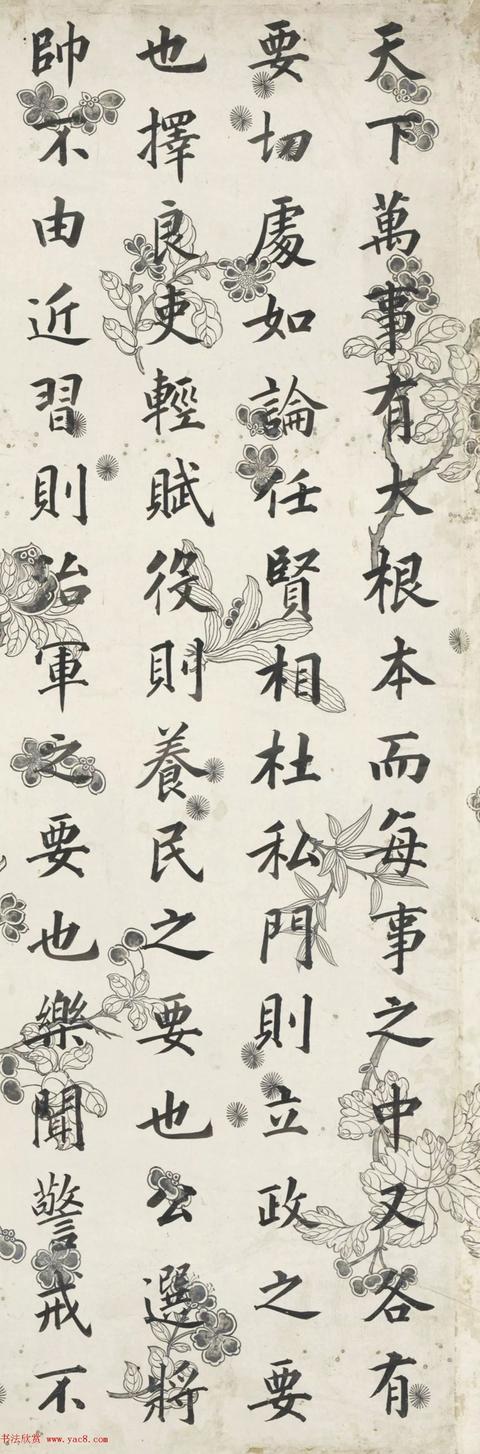 天下萬事有大根本而每事之中又各有
要切處如論任賢相杜私門則立政之要
也擇良吏輕賦役則養民之要也公選將
帥不由近習則治軍之要也樂聞警戒不
书法欣赏 www.yac8.com